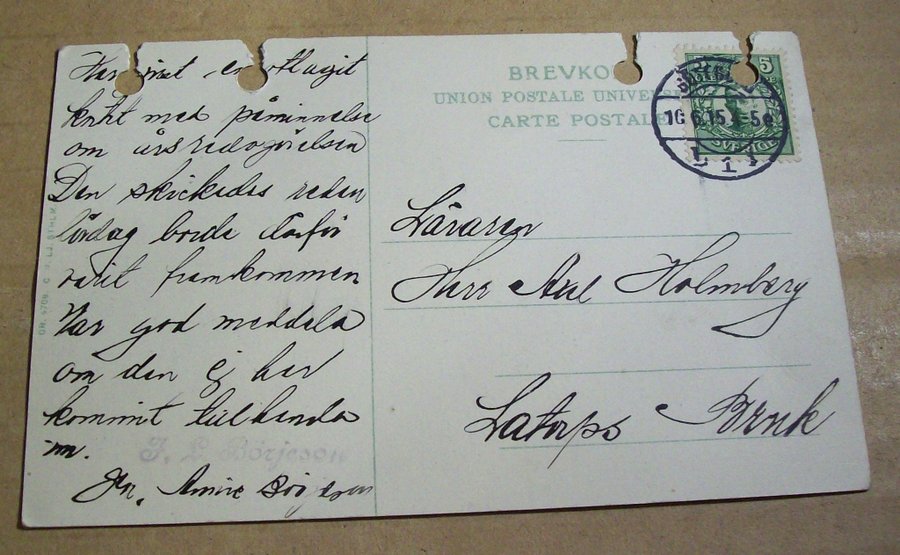 Har inst. emottagit
kort med påminnelse
om årsredogörelsen
Den skickades redan
lördag borde därför
varit framkommen
Var god meddela
om den ej har
kommit tillhanda
J. L. Börjeson
Börjeson
BREVKO
UNION POSTALE UNIVE
CARTE POSTALE
5
16.6.15
L 1
Läraren
Herr Axel Holmberg
Latorps Bruk